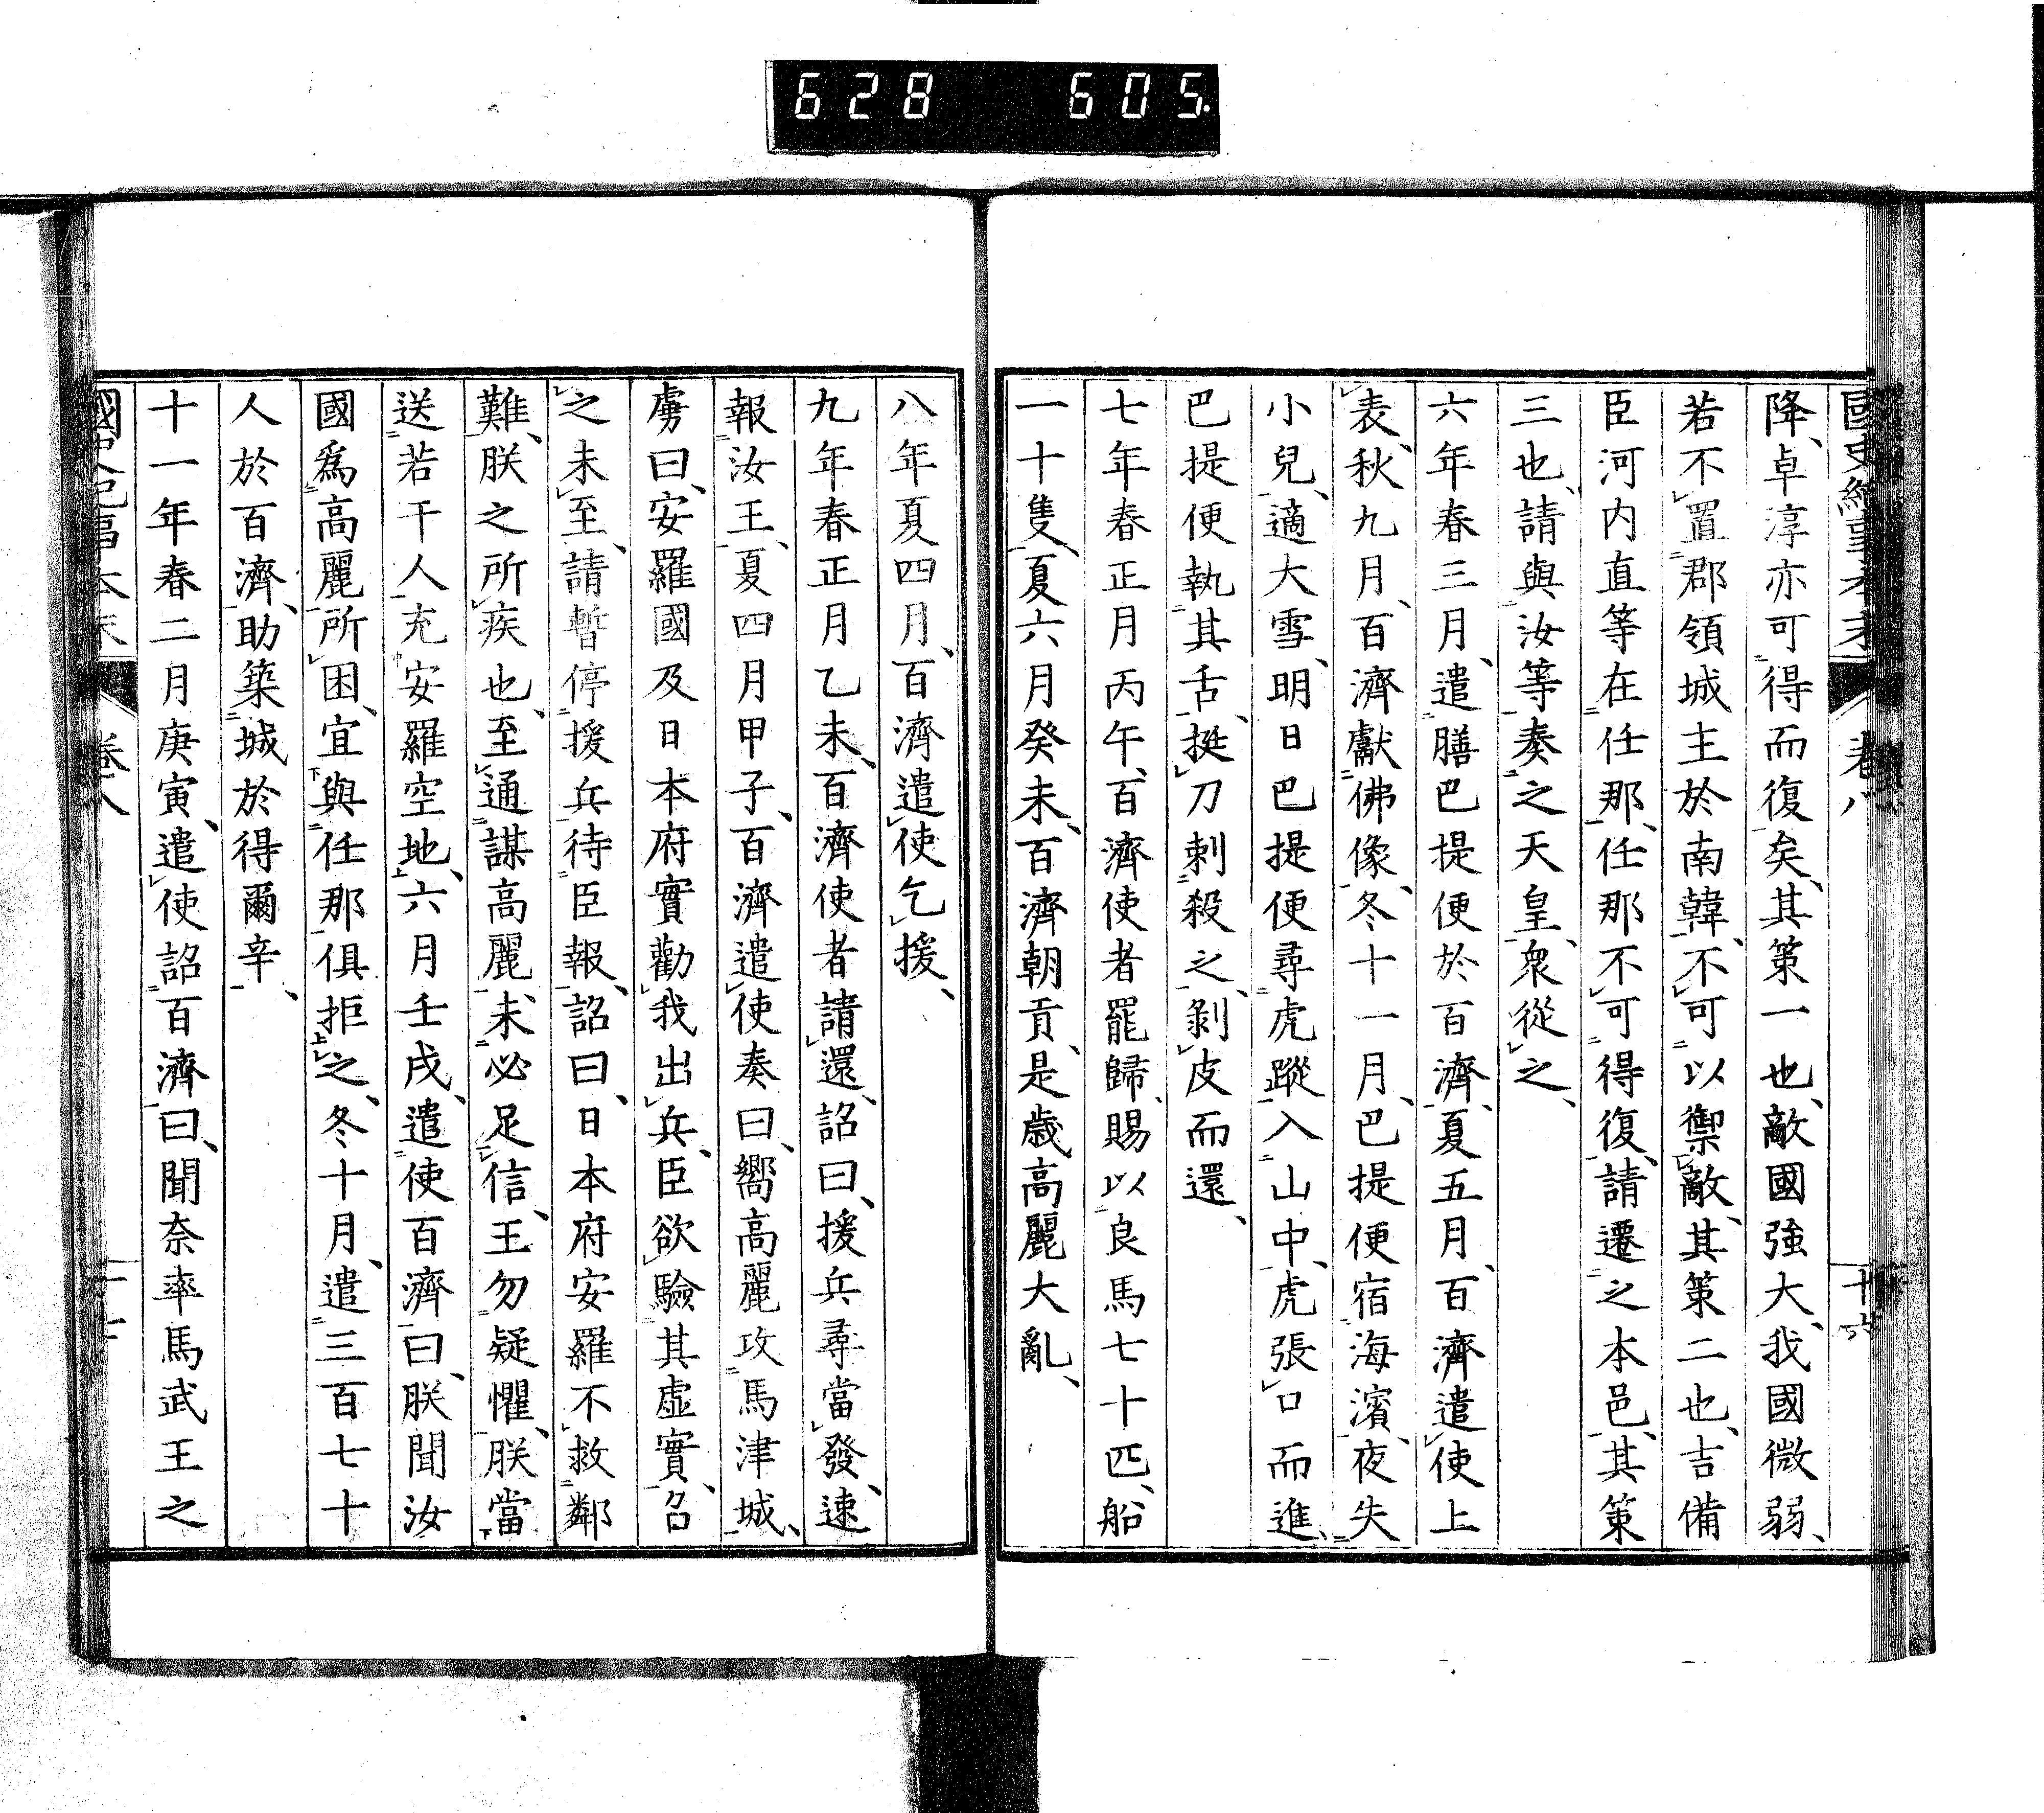 628 605.
降、卓淳亦可得而復矣、其策一也、敵國強大、我國微弱、
若不置郡領城主於南韓、不可以禦敵、其策二也、吉備
臣河内直等在任那、任那不可得復、請遷之本邑、其策
三也、請與汝等奏之天皇、衆從之、
六年春三月、遣膳巴提便於百濟、夏五月、百濟遣使上
表、秋九月、百濟獻佛像、冬十一月、巴提便宿海濱、夜失
小兒、適大雪、明日巴提便尋虎蹤入山中、虎張口而進、
巴提便執其舌、挺刀刺殺之、剝皮而還、
七年春正月丙午、百濟使者罷歸、賜以良馬七十匹、船
一十隻、夏六月癸未、百濟朝貢、是歳高麗大亂、
八年夏四月、百濟遣使乞援、
九年春正月乙未、百濟使者請還、詔曰、援兵尋當發、速
報汝王、夏四月甲子、百濟遣使奏曰、嚮高麗攻馬津城、
虜曰、安羅國及日本府實勸我出兵、臣欲驗其虛實、召
之未至、請暫停援兵待臣報、詔曰、日本府安羅不救鄰
難、朕之所疾也、至通謀高麗、未必足信、王勿疑懼、朕當
送若干人充安羅空地、六月壬戌、遣使百濟曰、朕聞汝
國爲高麗所困、宜與任那俱拒之、冬十月、遣三百七十
人於百濟、助築城於得爾辛、
十一年春二月庚寅、遣使詔百濟曰、聞奈率馬武王之